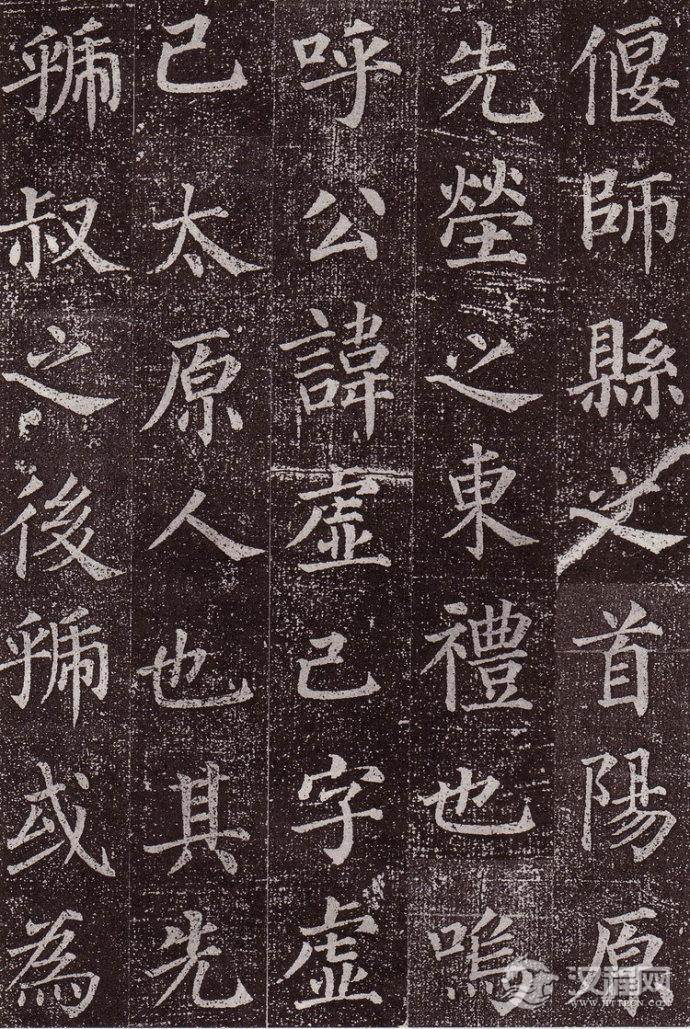 偃師縣之首陽原
先塋之東禮也嗚
呼公諱虛己字虛
己太原人也其先
虢叔之後虢或為
汉程网
WWW.HTTPCN.COM